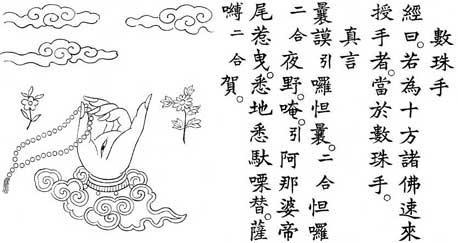 數珠手
經曰。若為十方諸佛速來
授手者。當於數珠手。
真言
曩謨引囉怛曩。二合怛囉
二合夜野。唵。引阿那婆帝
尾惹曳。悉地悉馱㗚替。薩
嚩二合賀。